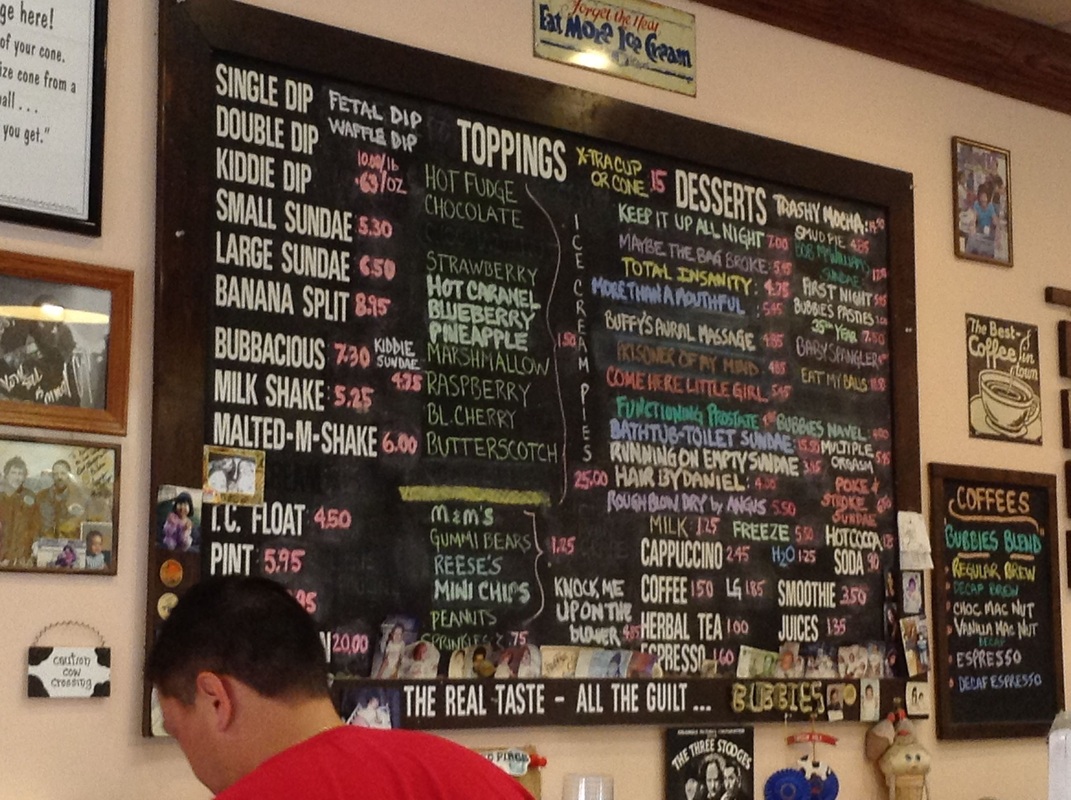 ge here!
of your cone.
ize cone from a
all . . .
you get."
Forget the Heat
Eat More Ice Cream
SINGLE DIP
DOUBLE DIP
KIDDIE DIP
SMALL SUNDAE 5.30
LARGE SUNDAE 6.50
BANANA SPLIT 8.95
BUBBACIOUS 7.30
MILK SHAKE 5.25
MALTED-M-SHAKE 6.00
I.C. FLOAT 4.50
PINT 5.95
20.00
FETAL DIP
WAFFLE DIP
10.00/lb
.69/OZ
KIDDIE
SUNDAE
4.75
TOPPINGS
HOT FUDGE
CHOCOLATE
STRAWBERRY
HOT CARAMEL
BLUEBERRY
PINEAPPLE
MARSHMALLOW
RASPBERRY
BL.CHERRY
BUTTERSCOTCH
1.50
M&M'S
GUMMI BEARS
REESE'S
MINI CHIPS
PEANUTS
SPRINKLES .75
1.25
X-TRA CUP
OR CONE .15
ICE CREAM PIES
25.00
KNOCK ME
UP ON THE
BLOWER
DESSERTS
KEEP IT UP ALL NIGHT 7.00
MAYBE THE BAG BROKE
TOTAL INSANITY: 4.75
MORE THAN A MOUTHFUL
BUFFY'S AURAL MASSAGE 4.85
PRISONER OF MY MIND
COME HERE LITTLE GIRL
FUNCTIONING PROSTATE
BATHTUB-TOILET SUNDAE
RUNNING ON EMPTY SUNDAE
HAIR BY DANIEL:
ROUGH BLOW DRY by ANGUS 5.50
TRASHY MOCHA:
MUD PIE
SUNDAE
FIRST NIGHT
BUBBIES PASTIES
YEAR
BABY SPANGLER
EAT MY BALLS
BUBBIES NAVEL
MULTIPLE
ORGASM
POKE &
STROKE
SUNDAE
MILK 1.25
FREEZE
HOT COCOA
CAPPUCCINO 2.45
H2O 1.25
SODA .90
COFFEE 1.50 LG 1.85
SMOOTHIE 3.50
HERBAL TEA 1.00
JUICES 1.35
ESPRESSO 1.60
THE REAL TASTE - ALL THE GUILT ... BUBBIES
The Best
Coffee in
town
COFFEES
BUBBIES BLEND
REGULAR BREW
DECAF BREW
CHOC MAC NUT
VANILLA MAC NUT
DECAF
ESPRESSO
DECAF ESPRESSO
caution
cow
crossing
THE THREE STOOGES